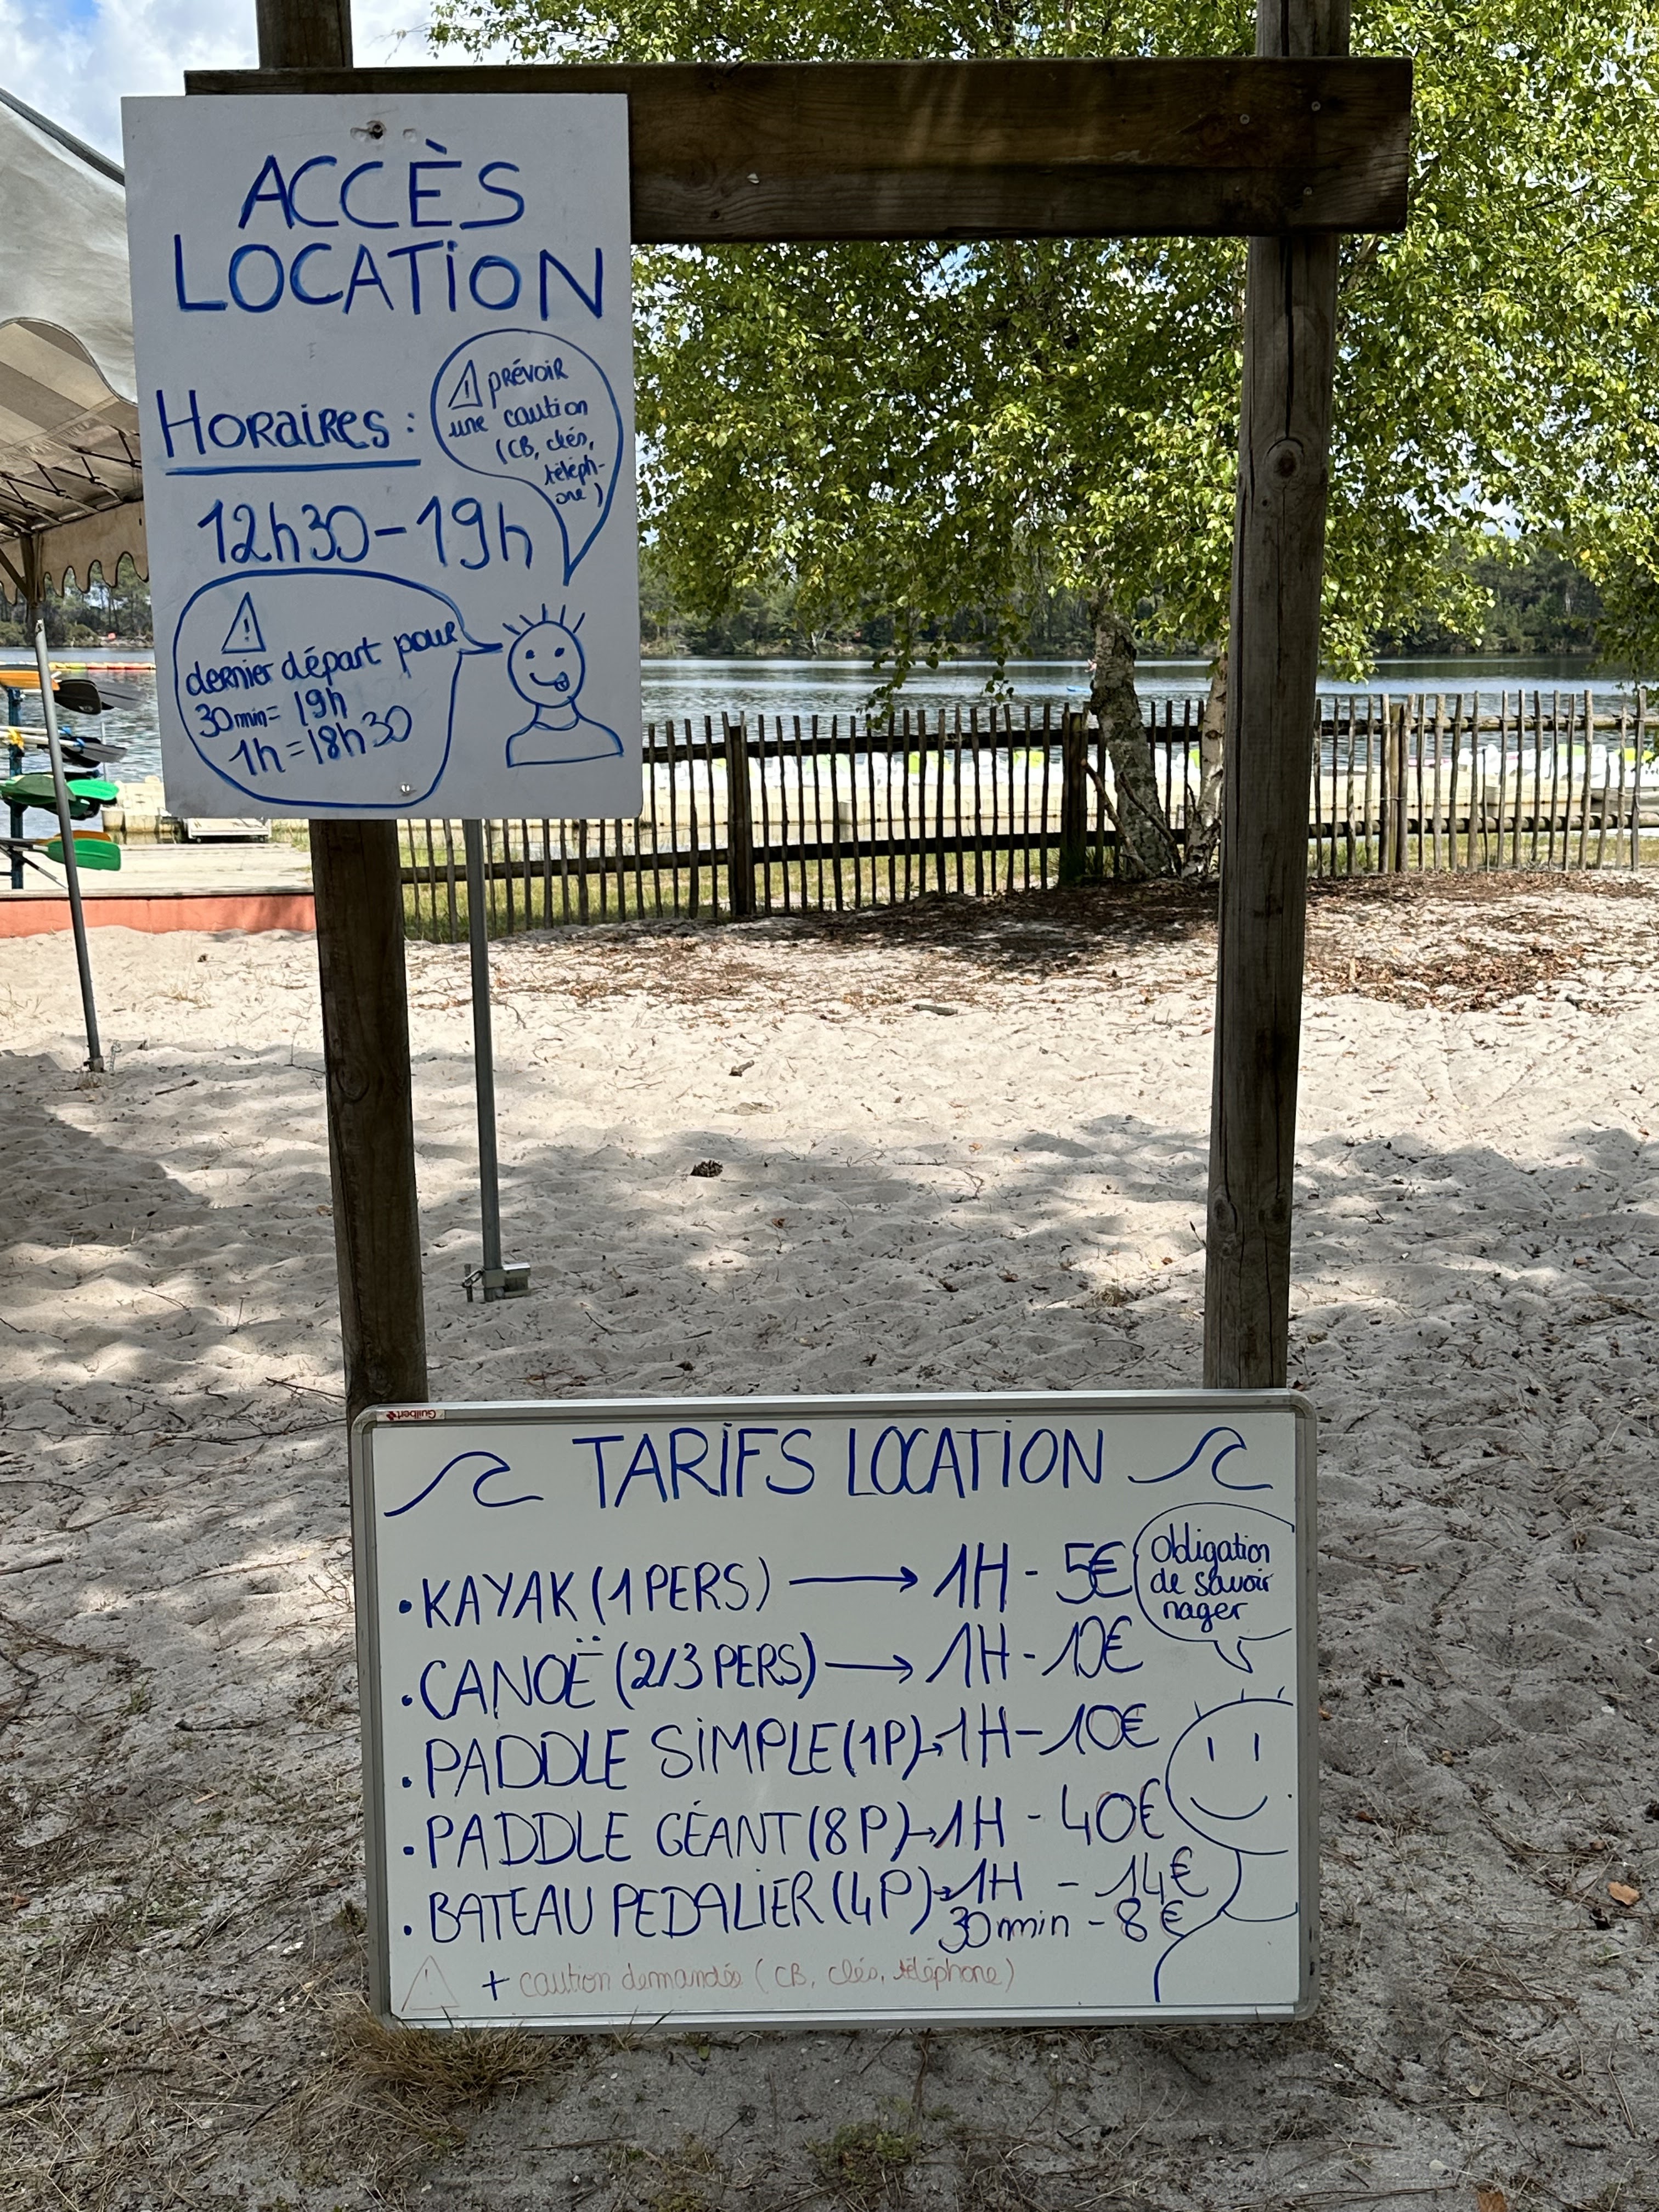 ACCÈS
LOCATION
Horaires :
⚠ prévoir
une caution
(CB, clés,
téléph-
one)
12h30-19h
⚠
dernier départ pour
30min= 19h
1h=18h30
Guilbert
TARIFS LOCATION
• KAYAK (1 PERS) → 1H - 5€
Obligation
de savoir
nager
• CANOË (2/3 PERS) → 1H - 10€
• PADDLE SIMPLE (1P) → 1H - 10€
• PADDLE GÉANT (8 P) → 1H - 40€
• BATEAU PEDALIER (4P) → 1H - 14€
30min - 8€
⚠ + caution demandée (CB, clés, téléphone)